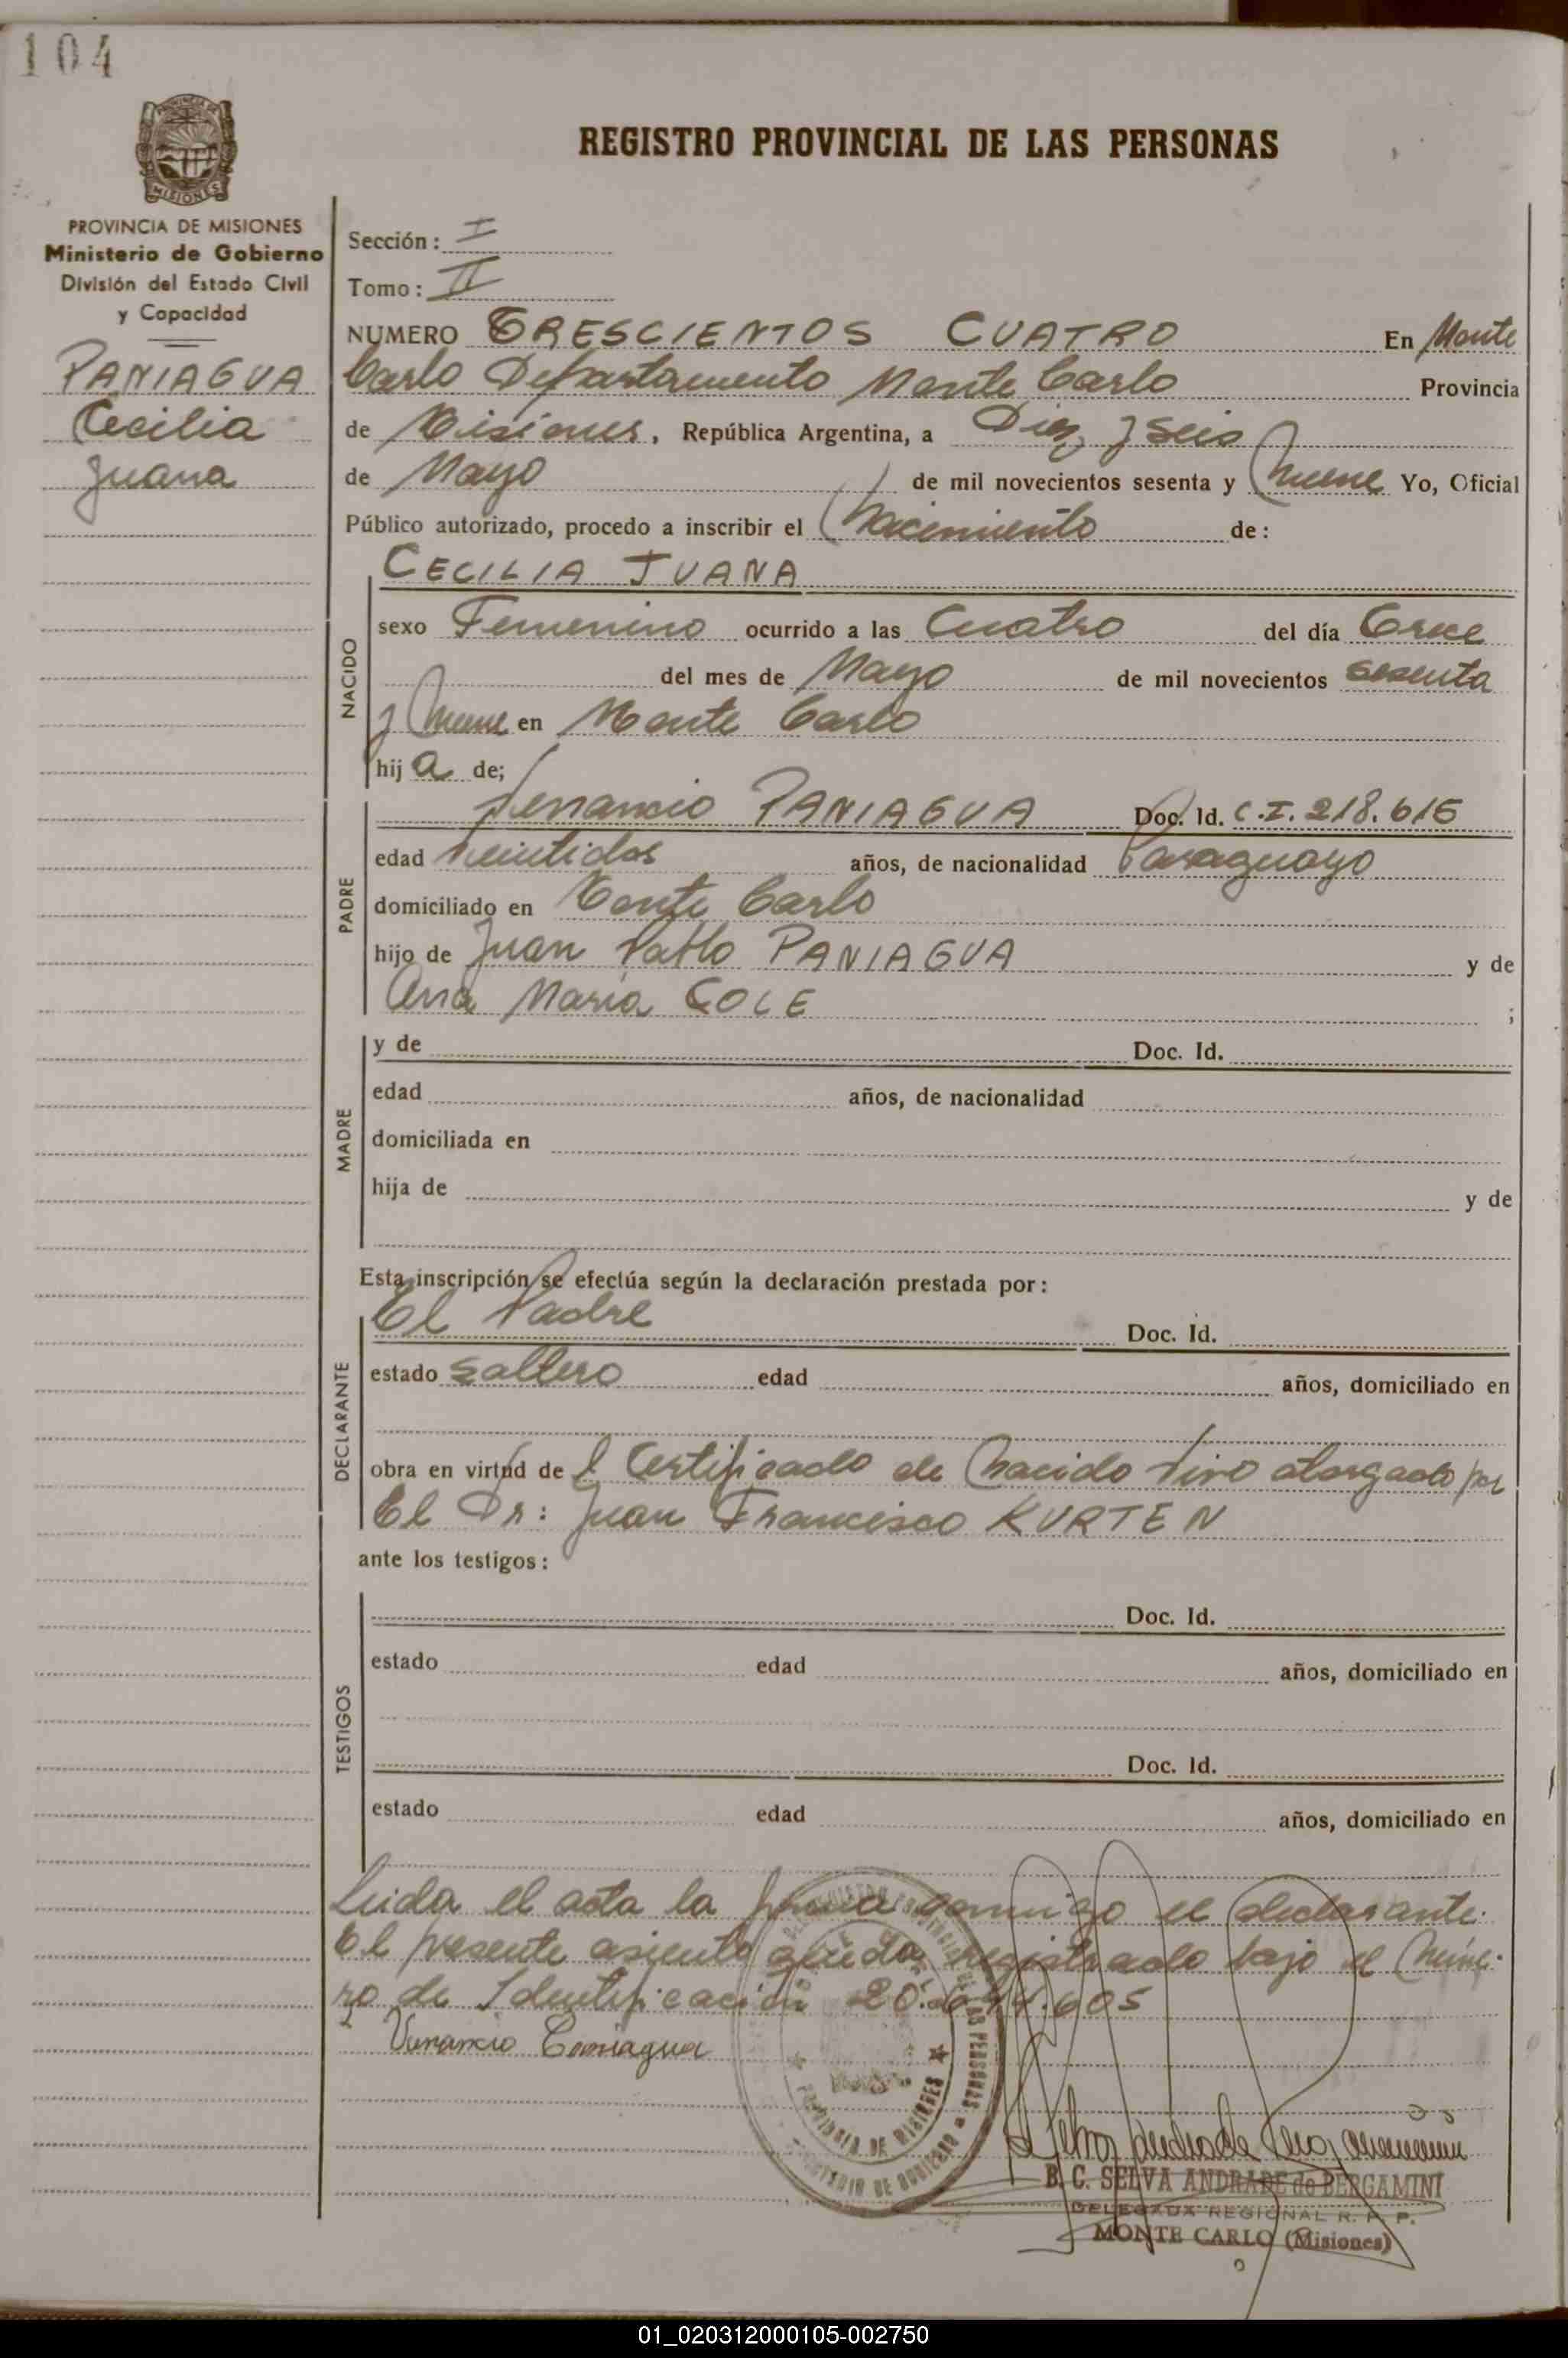 104
REGISTRO PROVINCIAL DE LAS PERSONAS
PROVINCIA DE MISIONES
Ministerio de Gobierno
División del Estado Civil
y Capacidad
PANIAGUA
Cecilia
Juana
Sección: I
Tomo: II
NUMERO TRESCIENTOS CUATRO En Monte
Carlo Departamento Monte Carlo Provincia
de Misiones, República Argentina, a Diez y Seis
de Mayo de mil novecientos sesenta y Nueve Yo, Oficial
Público autorizado, procedo a inscribir el Nacimiento de:
NACIDO
CECILIA JUANA
sexo Femenino ocurrido a las Cuatro del día Trece
del mes de Mayo de mil novecientos sesenta
y Nueve en Monte Carlo
hija de;
PADRE
Venancio PANIAGUA Doc. Id. C.I. 218.616
edad Veintidos años, de nacionalidad Paraguayo
domiciliado en Monte Carlo
hijo de Juan Pablo PANIAGUA y de
Ana Maria COLE ;
MADRE
y de Doc. Id.
edad años, de nacionalidad
domiciliada en
hija de y de
Esta inscripción se efectúa según la declaración prestada por:
DECLARANTE
El Padre Doc. Id.
estado soltero edad años, domiciliado en
obra en virtud de l Certificado de Nacido Vivo otorgado por
El Dr: Juan Francisco KURTEN
ante los testigos:
TESTIGOS
Doc. Id.
estado edad años, domiciliado en
Doc. Id.
estado edad años, domiciliado en
Leida el acta la firma conmigo el declarante.
El presente asiento queda registrado bajo el Núme-
ro de Identificación 20.
Venancio Paniagua
PROVINCIA DE MISIONES
B. C. SELVA ANDRADE de BERGAMINI
DELEGADA REGIONAL R. P. P.
MONTE CARLO (Misiones)
01_020312000105-002750